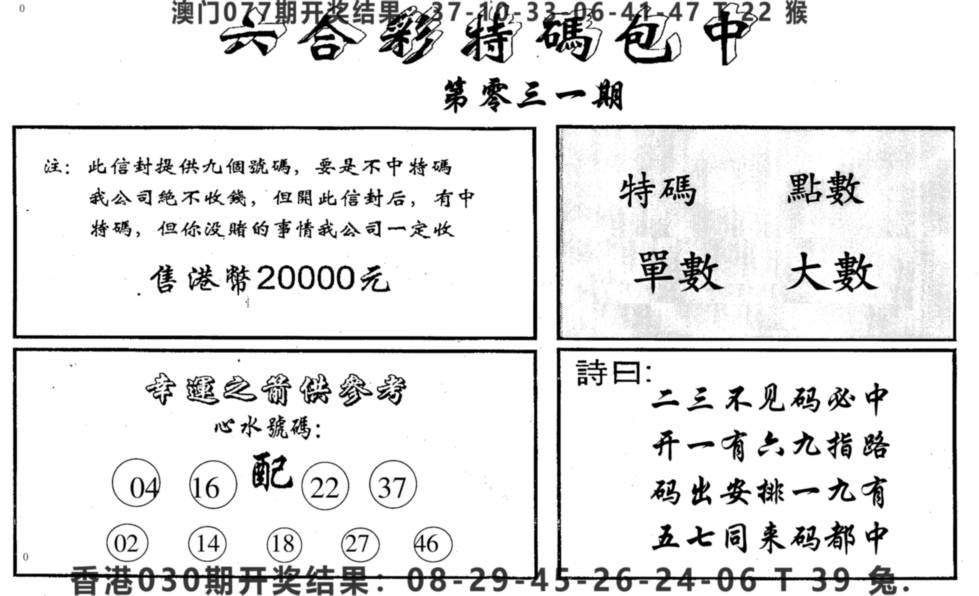 澳门077期开奖结果:37-10-33-06-41-47 T 22 猴
六合彩特碼包中
第零三一期
注：此信封提供九個號碼，要是不中特碼
我公司絕不收錢，但開此信封后，有中
特碼，但你没賭的事情我公司一定收
售港幣20000元
特碼 點數
單數 大數
幸運之箭供參考
心水號碼：
04 16 配 22 37
02 14 18 27 46
詩曰:
二三不见码必中
开一有六九指路
码出安排一九有
五七同来码都中
香港030期开奖结果：08-29-45-26-24-06 T 39 兔.